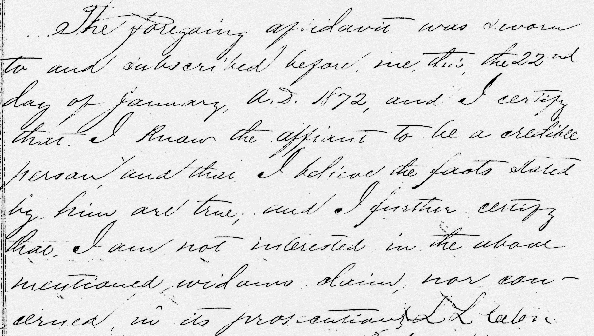 The foregoing affidavit was sworn
to and subscribed before me, this, the 22nd
day of January, A.D. 1872, and I certify
that I know the affiant to be a credible
person, and that I believe the facts stated
by him are true, and I further certify
that I am not interested in the above
mentioned widows claim, nor con-
cerned in its prosecution, L L